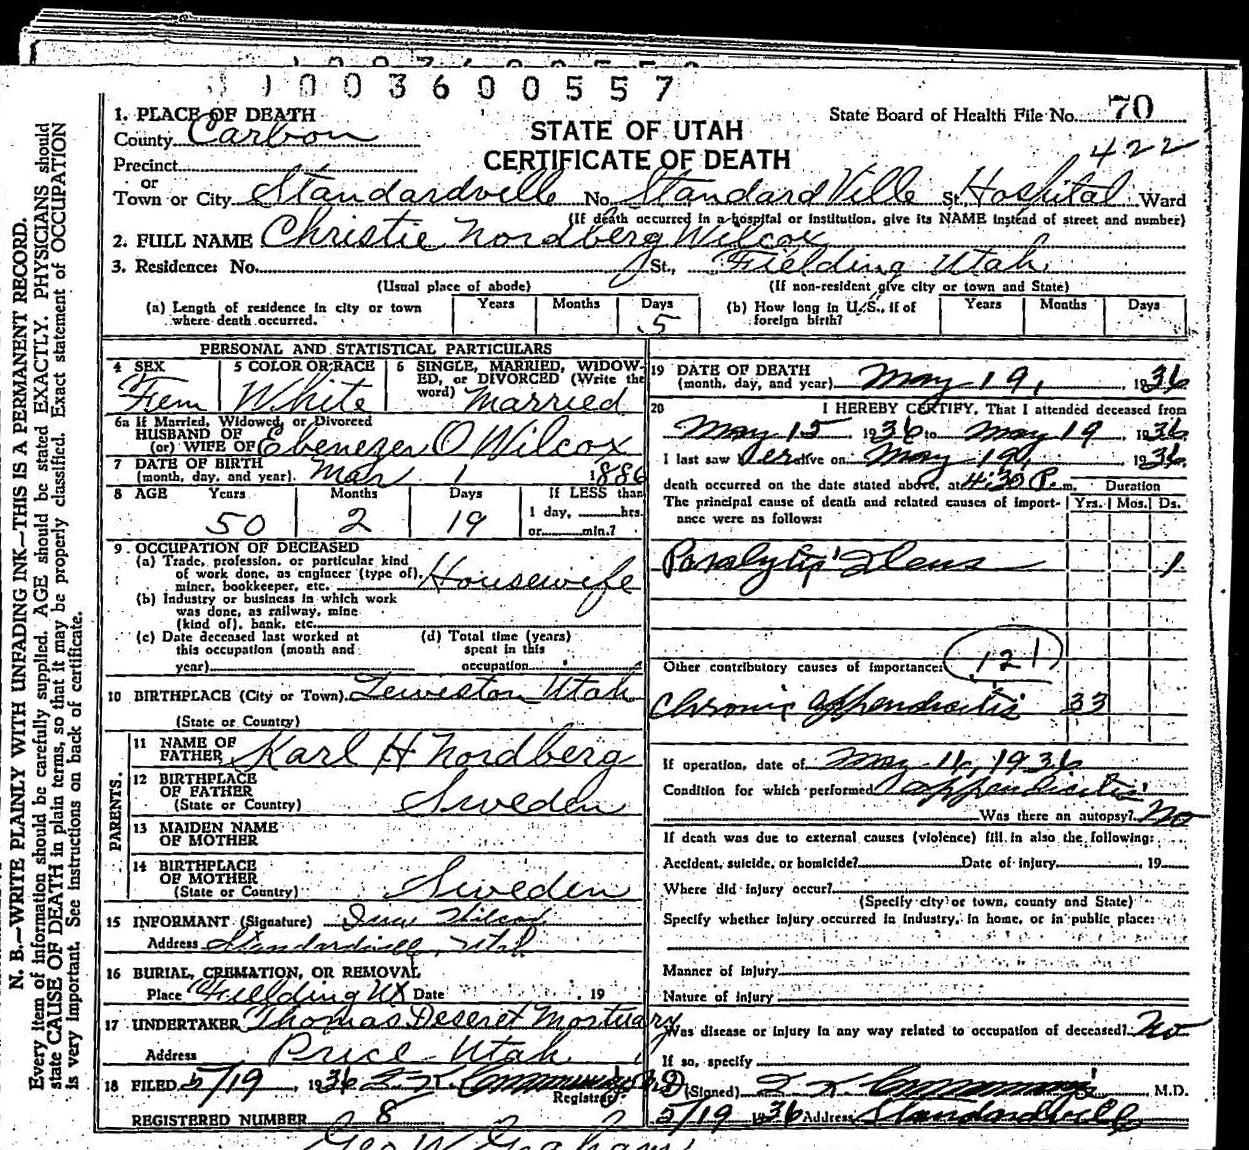 1003600557
1. PLACE OF DEATH
County Carbon
State Board of Health File No. 70
STATE OF UTAH
CERTIFICATE OF DEATH
422
Precinct
or
Town or City Standardville No. StandardVille St. Hospital Ward
(If death occurred in a hospital or institution, give its NAME instead of street and number)
2. FULL NAME Christie Nordberg Wilcox
3. Residence: No. St., Fielding Utah.
(Usual place of abode) (If non-resident give city or town and State)
(a) Length of residence in city or town where death occurred. Years Months Days 5
(b) How long in U.S., if of foreign birth? Years Months Days
PERSONAL AND STATISTICAL PARTICULARS
4 SEX Fem
5 COLOR OR RACE White
6 SINGLE, MARRIED, WIDOWED, or DIVORCED (Write the word) Married
6a If Married, Widowed, or Divorced
HUSBAND OF
(or) WIFE OF Ebenezer O Wilcox
7 DATE OF BIRTH
(month, day, and year). Mar 1 1886
8 AGE Years 50 Months 2 Days 19
If LESS than
1 day, hrs.
or min.?
9. OCCUPATION OF DECEASED
(a) Trade, profession, or particular kind
of work done, as engineer (type of),
miner, bookkeeper, etc. Housewife
(b) Industry or business in which work
was done, as railway, mine
(kind of), bank, etc.
(c) Date deceased last worked at
this occupation (month and
year)
(d) Total time (years)
spent in this
occupation
10 BIRTHPLACE (City or Town). Lewiston Utah
(State or Country)
PARENTS.
11 NAME OF
FATHER Karl H Nordberg
12 BIRTHPLACE
OF FATHER
(State or Country) Sweden
13 MAIDEN NAME
OF MOTHER
14 BIRTHPLACE
OF MOTHER
(State or Country) Sweden
15 INFORMANT (Signature) Wilcox
Address Standardville, Utah
16 BURIAL, CREMATION, OR REMOVAL
Place Fielding Date 19
17 UNDERTAKER Thomas Deseret Mortuary
Address Price Utah
18 FILED 5/19, 1936
Registrar
REGISTERED NUMBER 8
Geo W Graham
19 DATE OF DEATH
(month, day, and year) May 19, 1936
20 I HEREBY CERTIFY, That I attended deceased from
May 15 1936 to May 19, 1936
I last saw her alive on May 19, 1936
death occurred on the date stated above, at 4:30 P. m. Duration
The principal cause of death and related causes of importance were as follows: Yrs. Mos. Ds.
Paralytic Ileus 1
Other contributory causes of importance: 121
Chronic appendicitis 33
If operation, date of May 16, 1936
Condition for which performed appendicitis
Was there an autopsy? No
If death was due to external causes (violence) fill in also the following:
Accident, suicide, or homicide? Date of injury 19
Where did injury occur?
(Specify city or town, county and State)
Specify whether injury occurred in industry, in home, or in public place:
Manner of Injury
Nature of Injury
Was disease or injury in any way related to occupation of deceased? No
If so, specify
(Signed) M.D.
5/19 1936 Address Standardville
N. B.—WRITE PLAINLY WITH UNFADING INK—THIS IS A PERMANENT RECORD.
Every item of information should be carefully supplied. AGE should be stated EXACTLY. PHYSICIANS should
state CAUSE OF DEATH in plain terms, so that it may be properly classified. Exact statement of OCCUPATION
is very important. See instructions on back of certificate.